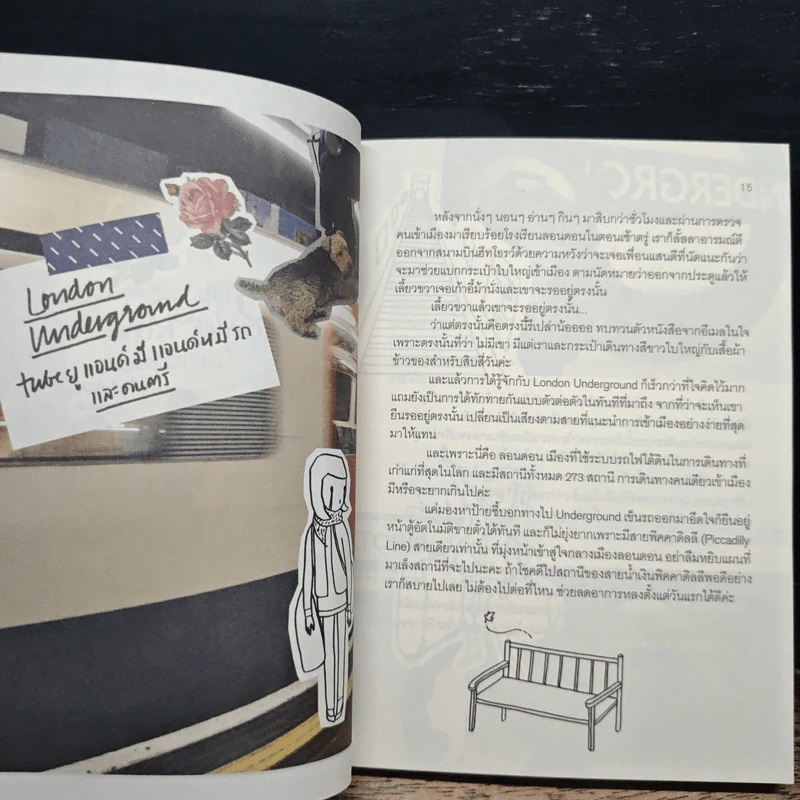 London
Underground
tube ยู แอนด์ มี แอนด์ หมี รถ
และดนตรี
15
หลังจากนั่งๆ นอนๆ อ่านๆ กินๆ มาสิบกว่าชั่วโมงและผ่านการตรวจ
คนเข้าเมืองมาเรียบร้อยโรงเรียนลอนดอนในตอนเช้าตรู่ เราก็ลั้ลลาอารมณ์ดี
ออกจากสนามบินฮีทโธรว์ด้วยความหวังว่าจะเจอเพื่อนแสนดีที่นัดแนะกันว่า
จะมาช่วยแบกกระเป๋าใบใหญ่เข้าเมือง ตามนัดหมายว่าออกจากประตูแล้วให้
เลี้ยวขวาเจอเก้าอี้ม้านั่งและเขาจะรออยู่ตรงนั้น
เลี้ยวขวาแล้วเขาจะรออยู่ตรงนั้น...
ว่าแต่ตรงนั้นคือตรงนี้รึเปล่าน้อออ ทบทวนตัวหนังสือจากอีเมลในใจ
เพราะตรงนั้นที่ว่า ไม่มีเขา มีแต่เราและกระเป๋าเดินทางสีขาวใบใหญ่กับเสื้อผ้า
ข้าวของสำหรับสิบสี่วันค่ะ
และแล้วการได้รู้จักกับ London Underground ก็เร็วกว่าที่ใจคิดไว้มาก
แถมยังเป็นการได้ทักทายกันแบบตัวต่อตัวในทันทีที่มาถึง จากที่ว่าจะเห็นเขา
ยืนรออยู่ตรงนั้น เปลี่ยนเป็นเสียงตามสายที่แนะนำการเข้าเมืองอย่างง่ายที่สุด
มาให้แทน
และเพราะนี่คือ ลอนดอน เมืองที่ใช้ระบบรถไฟใต้ดินในการเดินทางที่
เก่าแก่ที่สุดในโลก และมีสถานีทั้งหมด 273 สถานี การเดินทางคนเดียวเข้าเมือง
มีหรือจะยากเกินไปค่ะ
แค่มองหาป้ายชี้บอกทางไป Underground เข็นรถออกมาอึดใจก็ยืนอยู่
หน้าตู้อัตโนมัติขายตั๋วได้ทันที และก็ไม่ยุ่งยากเพราะมีสายพิคคาดิลลี (Piccadilly
Line) สายเดียวเท่านั้น ที่มุ่งหน้าเข้าสู่ใจกลางเมืองลอนดอน อย่าลืมหยิบแผนที่
มาเล็งสถานีที่จะไปนะคะ ถ้าโชคดีไปสถานีของสายน้ำเงินพิคคาดิลลีพอดีอย่าง
เราก็สบายไปเลย ไม่ต้องไปต่อที่ไหน ช่วยลดอาการหลงตั้งแต่วันแรกได้ดีค่ะ